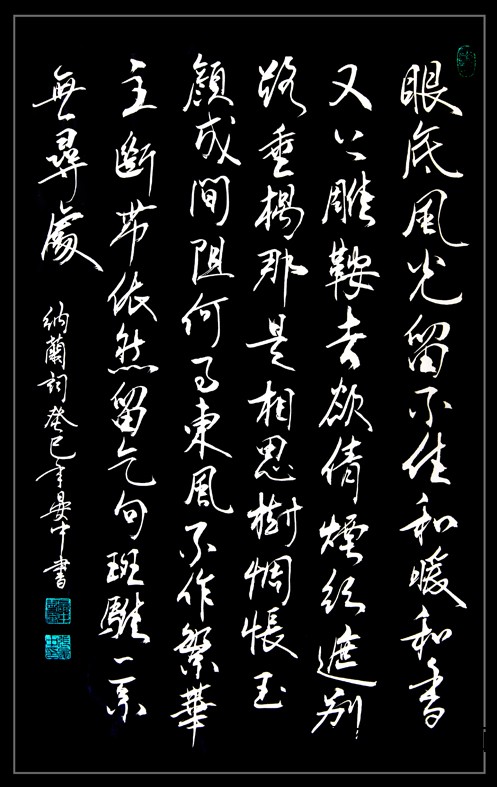 眼底風光留不住和暖和香
又上雕鞍去欲倩煙絲遮別
路垂楊那是相思樹惆悵玉
顏成間阻何事東風不作繁華
主斷帶依然留乞句斑騅一系
無尋處
納蘭詞癸巳年晏中書